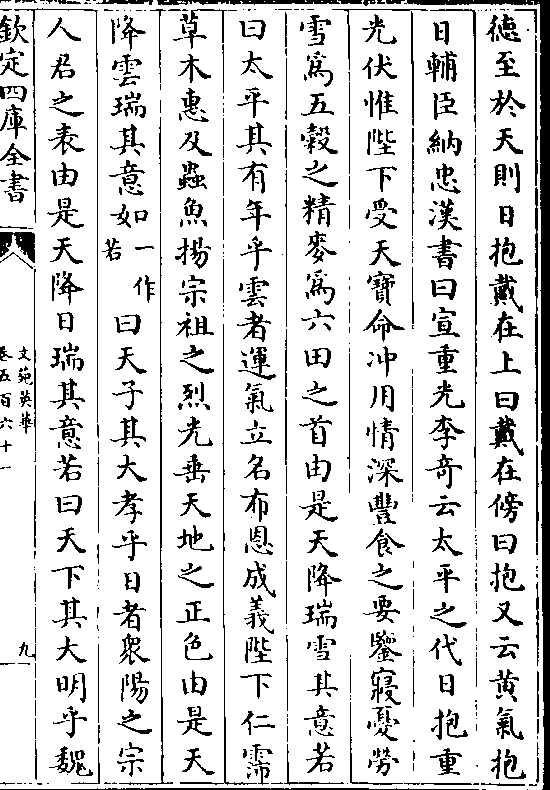 德至於天則日抱戴在上曰戴在傍曰抱又云黃氣抱
日輔臣納忠漢書曰宣重光李竒云太平之代日抱重
光伏惟陛下受天寶命冲用情深豐食之要鑒寢憂勞
雪爲五穀之精麥爲六田之首由是天降瑞雪其意若
曰太平其有年乎雲者運氣立名布恩成義陛下仁霈
草木惠及蟲魚揚宗祖之烈光垂天地之正色由是天
降雲瑞其意如一作若曰天子其大孝乎日者衆陽之宗
人君之表由是天降日瑞其意若曰天下其大明乎魏
欽定四庫全書
文苑英華
卷五百六十一
九